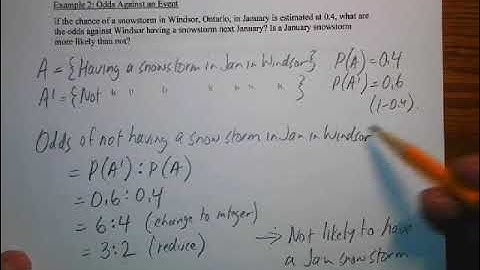 Example 2: Odds Against an Event
If the chance of a snowstorm in Windsor, Ontario, in January is estimated at 0.4, what are
the odds against Windsor having a snowstorm next January? Is a January snowstorm
more likely than not?
A = {Having a snowstorm in Jan in Windsor}
A' = {Not " " " " " " "}
P(A) = 0.4
P(A') = 0.6
(1-0.4).
Odds of not having a snow storm in Jan in Windsor
= P(A') : P(A)
= 0.6 : 0.4
= 6:4 (change to integer)
= 3:2 (reduce)
→ Not likely to have
a Jan snowstorm